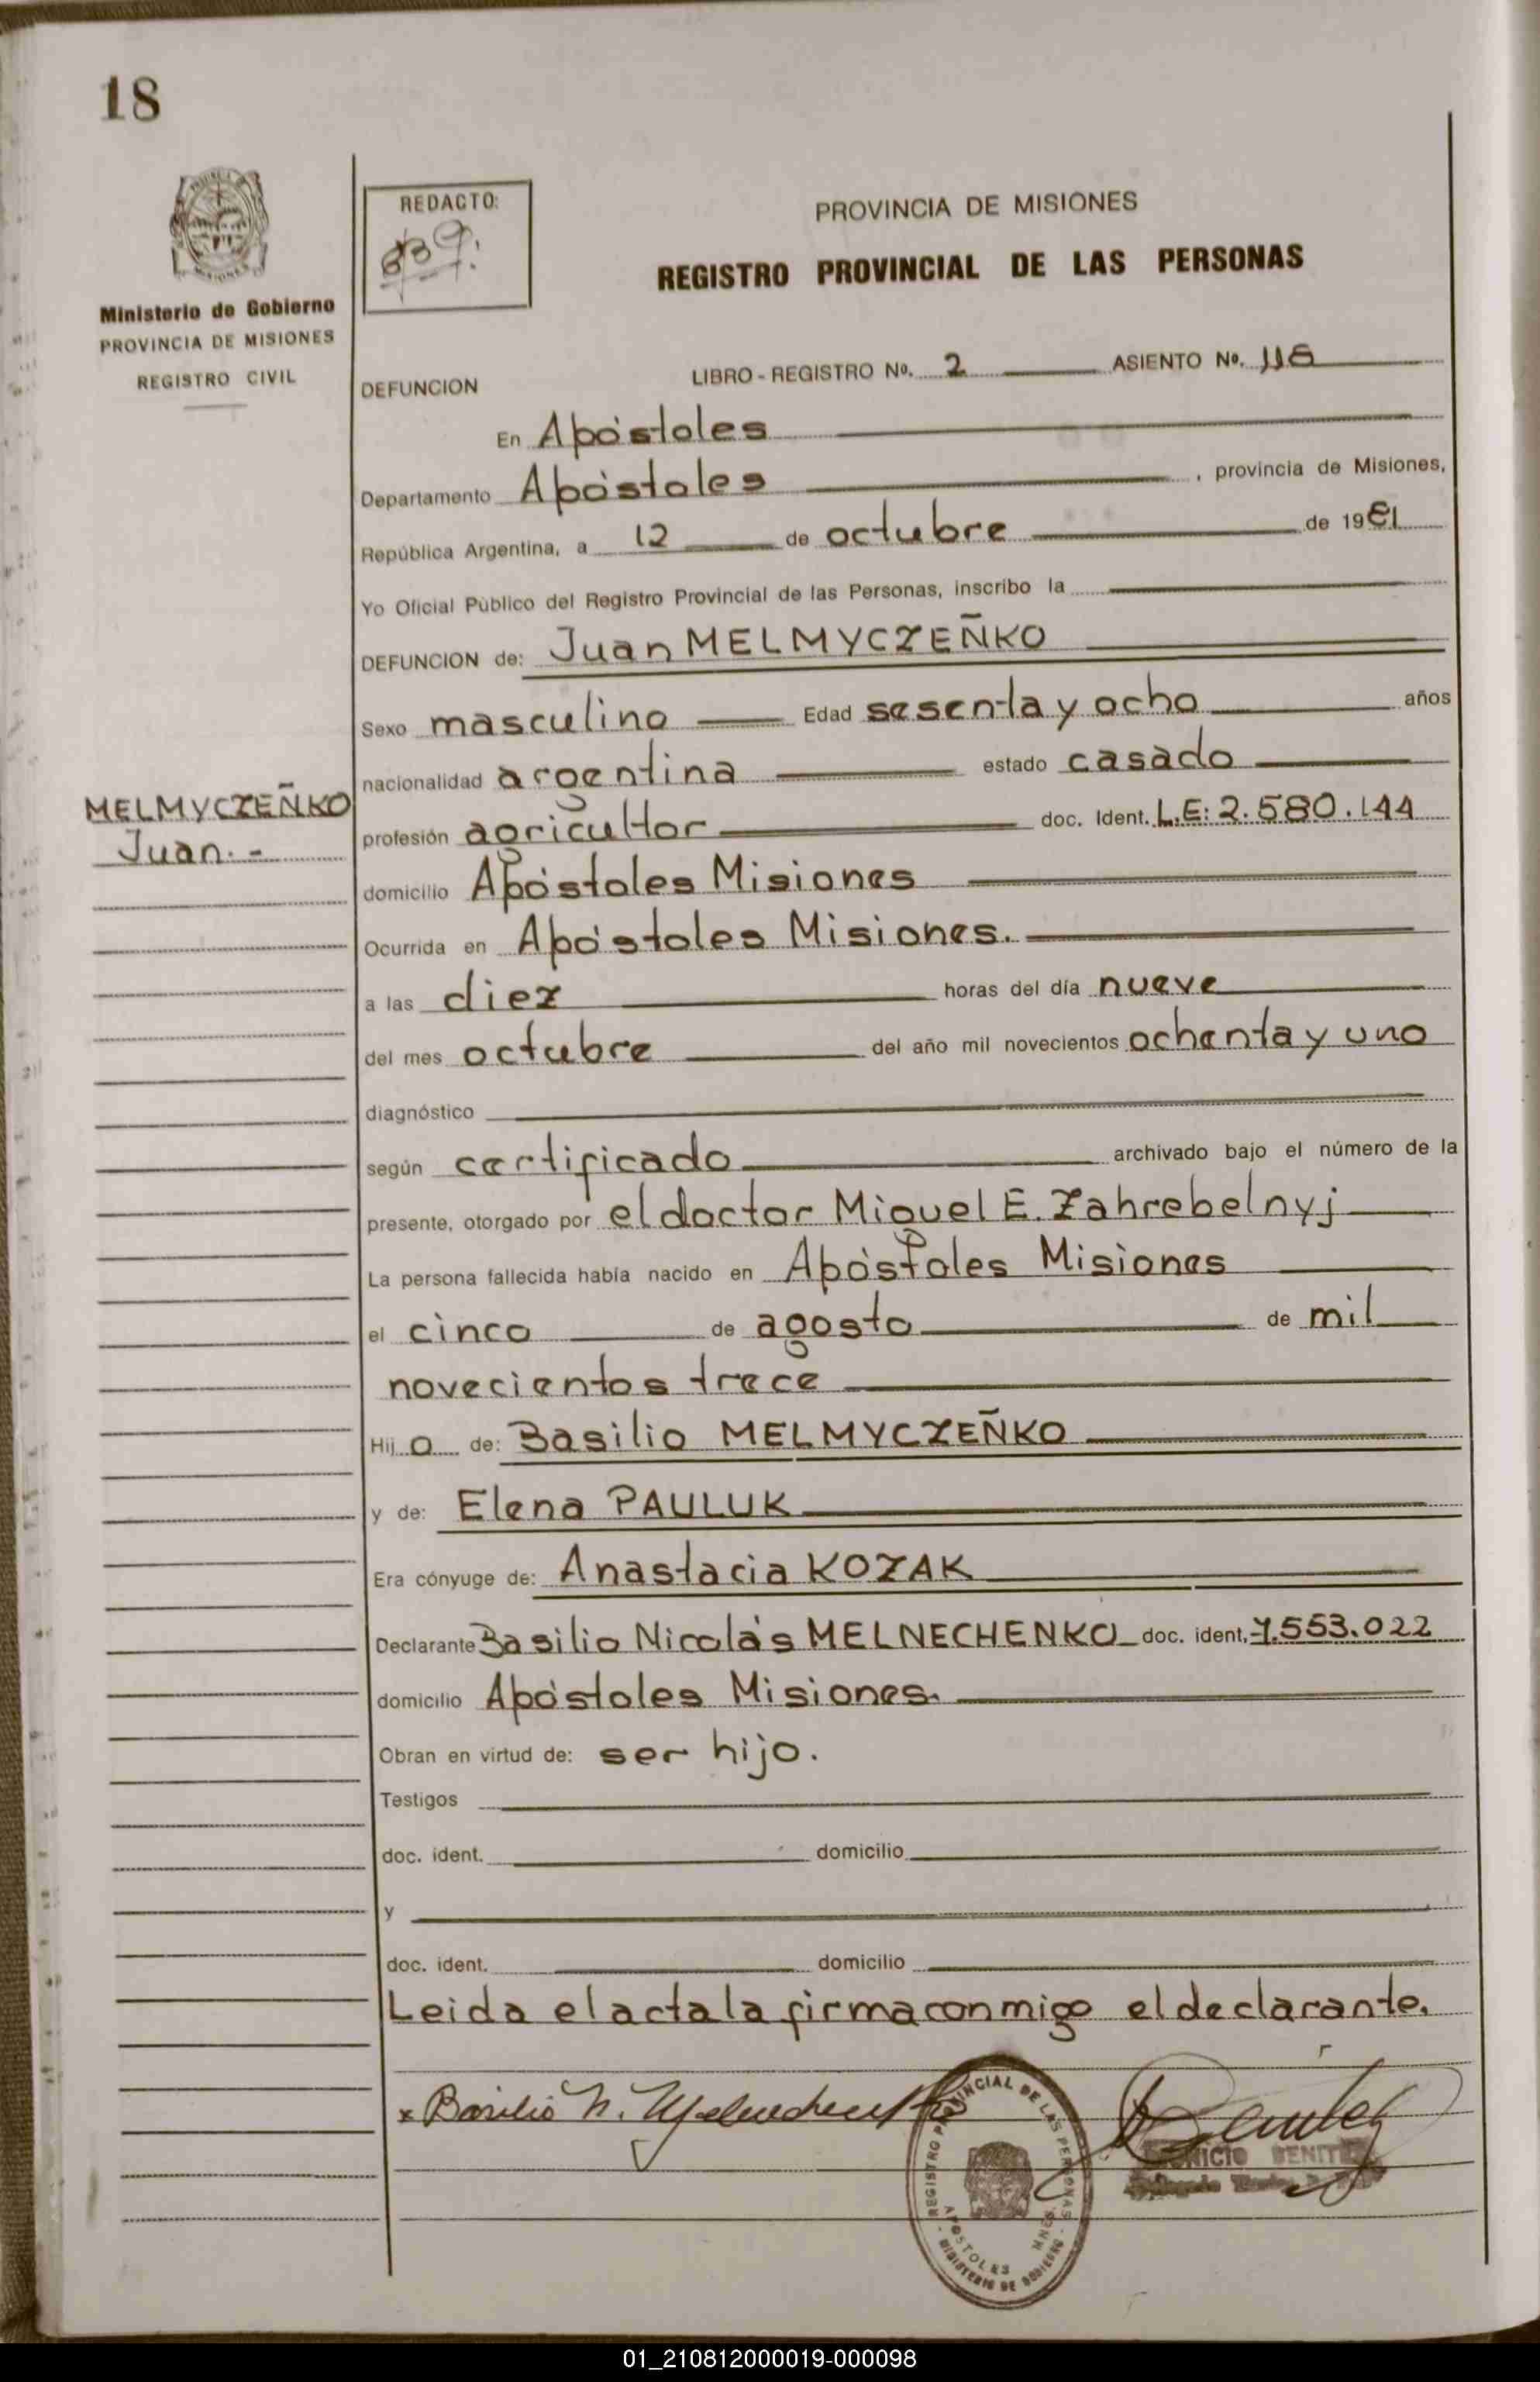 18
REDACTO:
PROVINCIA DE MISIONES
REGISTRO PROVINCIAL DE LAS PERSONAS
Ministerio de Gobierno
PROVINCIA DE MISIONES
REGISTRO CIVIL
DEFUNCION
LIBRO - REGISTRO Nº. 2 ASIENTO Nº.
En Apóstoles
Departamento Apóstoles , provincia de Misiones,
República Argentina, a 12 de octubre de 1981
Yo Oficial Público del Registro Provincial de las Personas, inscribo la
DEFUNCION de: Juan MELMYCZEÑKO
Sexo masculino Edad sesenta y ocho años
nacionalidad argentina estado casado
MELMYCZEÑKO
Juan.-
profesión agricultor doc. Ident. L.E: 2.580.144
domicilio Apóstoles Misiones
Ocurrida en Apóstoles Misiones.
a las diez horas del día nueve
del mes octubre del año mil novecientos ochenta y uno
diagnóstico
según certificado archivado bajo el número de la
presente, otorgado por el doctor Miguel E. Zahrebelnyj
La persona fallecida había nacido en Apóstoles Misiones
el cinco de agosto de mil
novecientos trece
Hij o de: Basilio MELMYCZEÑKO
y de: Elena PAULUK
Era cónyuge de: Anastacia KOZAK
Declarante Basilio Nicolás MELNECHENKO doc. ident. 7.553.022
domicilio Apóstoles Misiones.
Obran en virtud de: ser hijo.
Testigos
doc. ident. domicilio
y
doc. ident. domicilio
Leida el acta la firma conmigo el declarante.
x Basilio N. Melnechenko
REGISTRO PROVINCIAL DE LAS PERSONAS
APOSTOLES MNES.
MINISTERIO DE GOBIERNO
BENITEZ
01_210812000019-000098